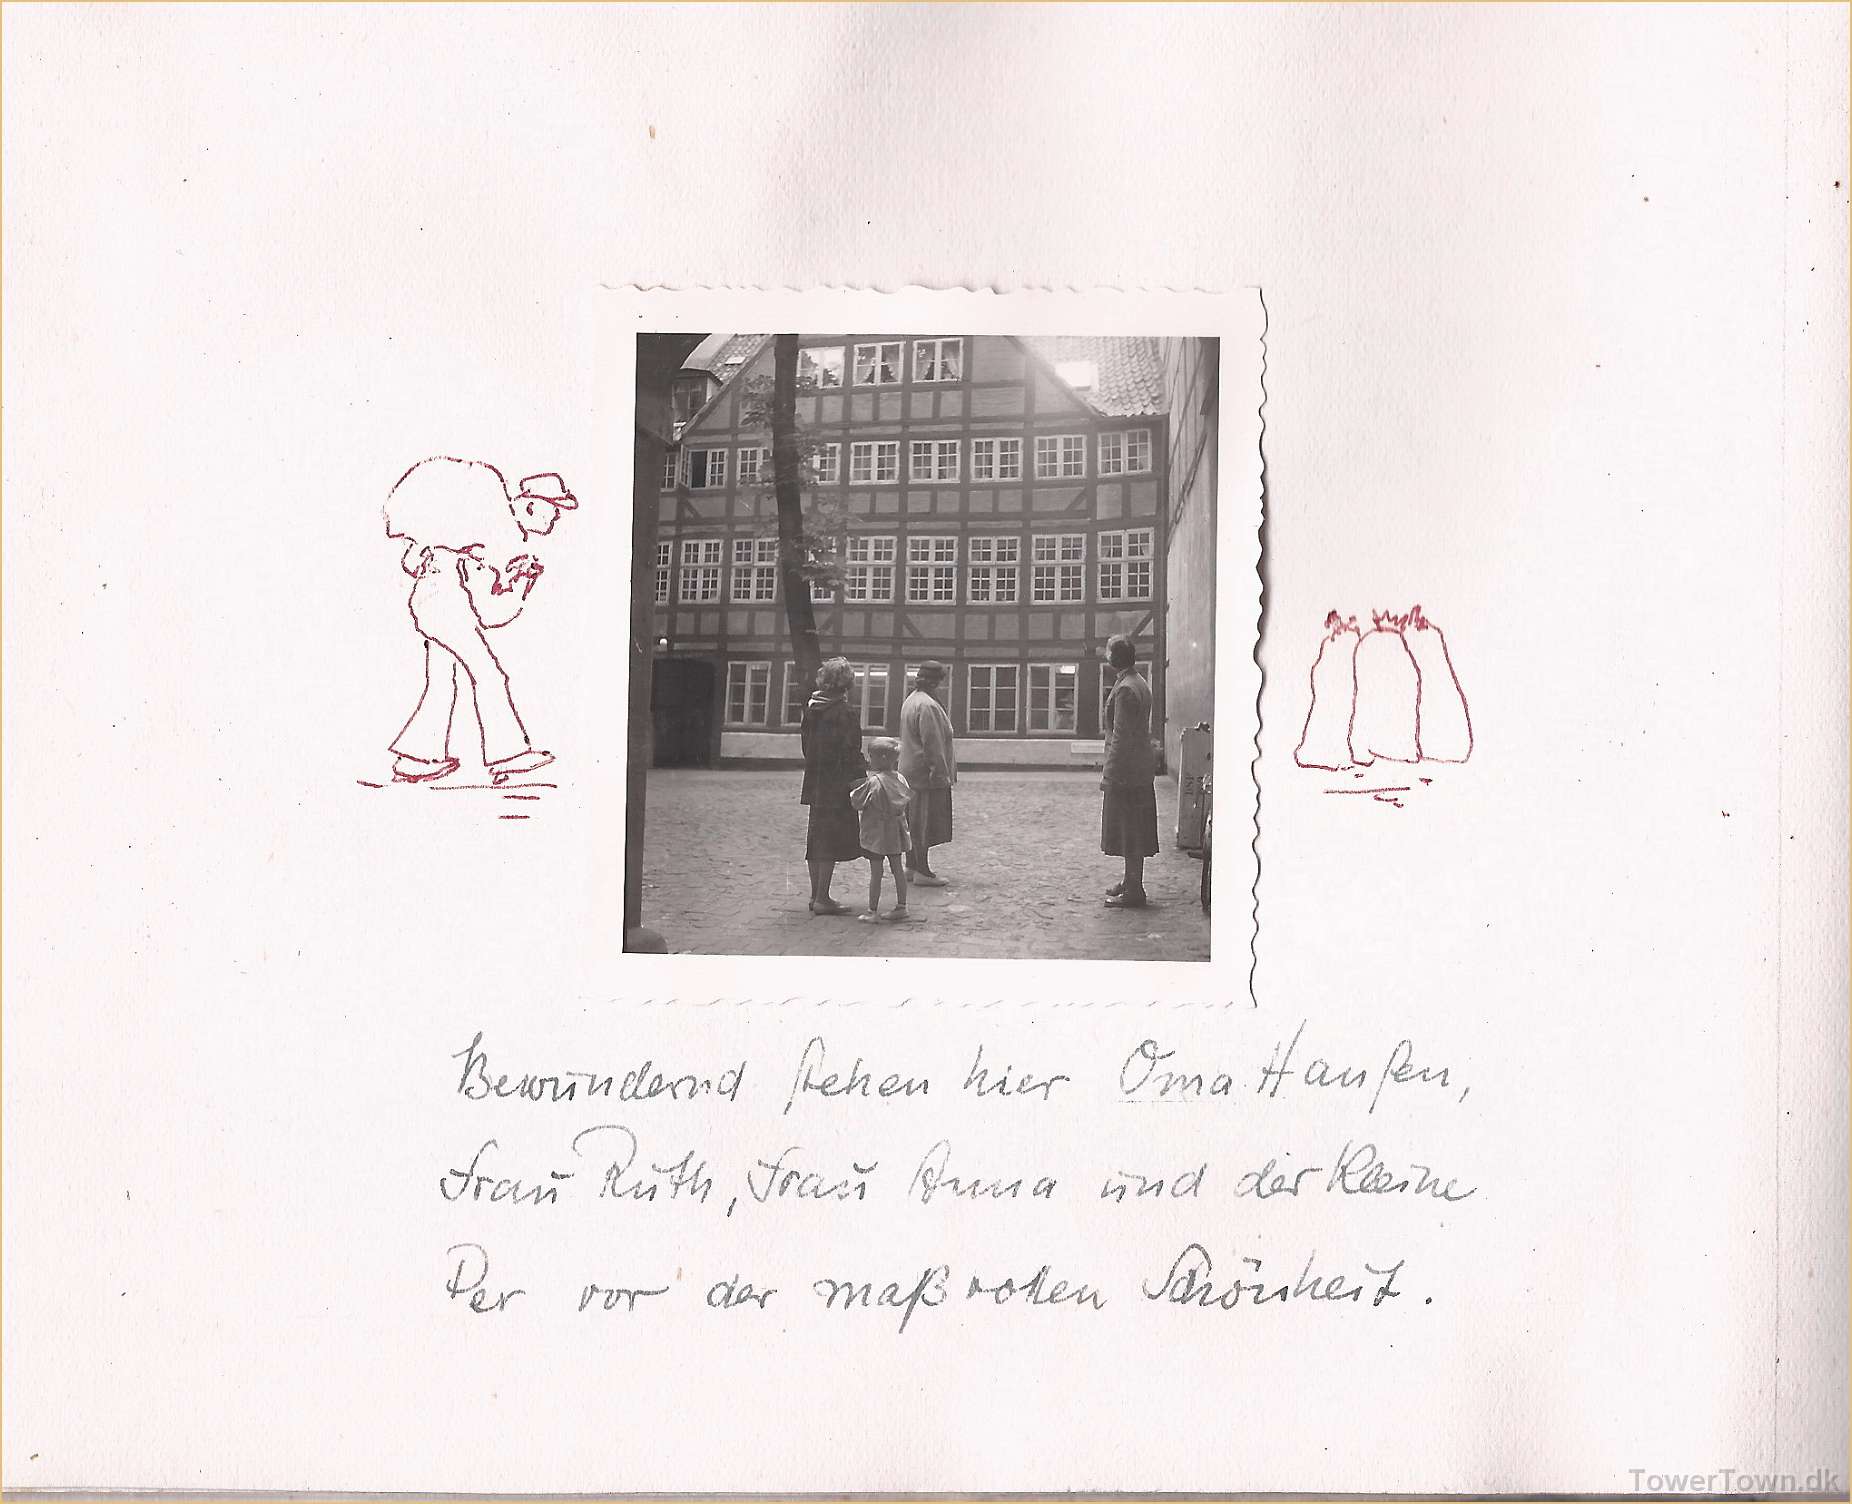 Bewundernd stehen hier Oma Hansen,
Frau Ruth, Frau Anna und der kleine
Per vor der maßvollen Schönheit.
TowerTown.dk